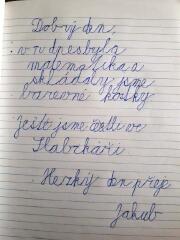 Dobrý den,
v tv dnes byla
matematika a
skládaly jsme
barevné kostky
Ještě jsme četli ve
Slabikáři
Hezký den přeje
Jakub